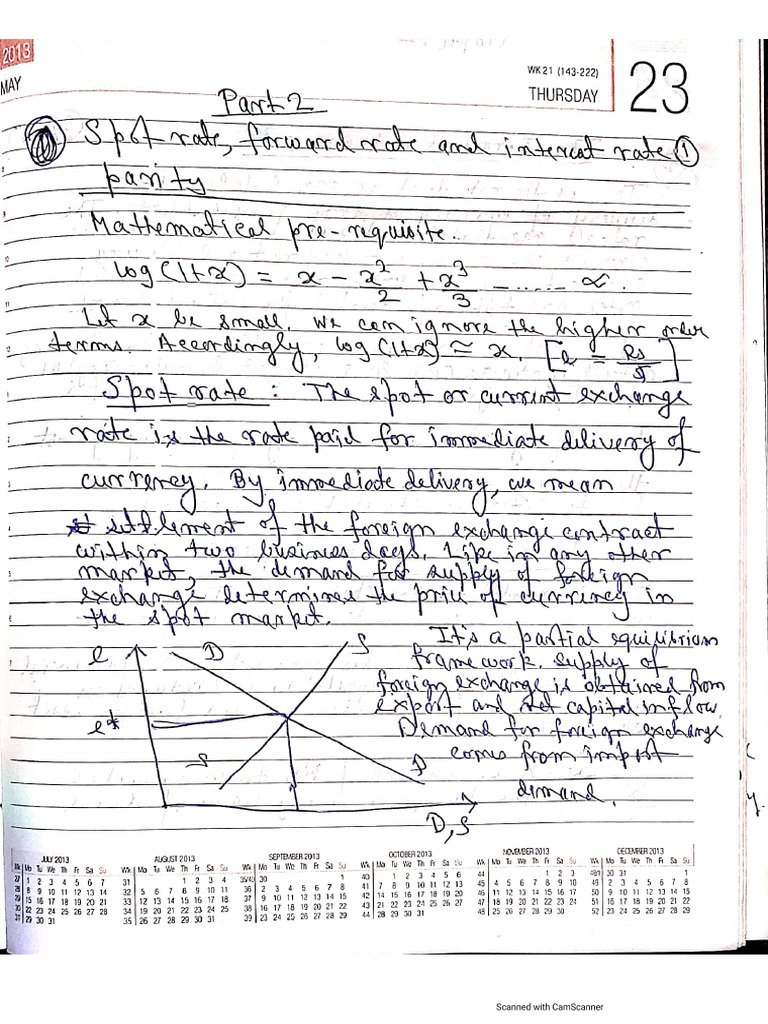 2013
MAY
WK 21 (143-222)
THURSDAY
23
Part 2
Spot rate, forward rate and interest rate ①
parity
Mathematical pre-requisite.
log(1+x) = x - x²/2 + x³/3 ........ ∝.
Let x be small. We can ignore the higher order
terms. Accordingly, log(1+x) ≈ x. [e = Rs/$]
Spot rate : The spot or current exchange
rate is the rate paid for immediate delivery of
currency. By immediate delivery, we mean
settlement of the foreign exchange contract
within two business days. Like in any other
market, the demand for supply of foreign
exchange determines the price of currency in
the spot market.
It's a partial equilibrium
framework. supply of
foreign exchange is obtained from
export and net capital inflow.
Demand for foreign exchange
comes from import
demand.
e
D
S
e*
S
D
D, S
JULY 2013
Wk Mo Tu We Th Fr Sa Su
27 1 2 3 4 5 6 7
28 8 9 10 11 12 13 14
29 15 16 17 18 19 20 21
30 22 23 24 25 26 27 28
31 29 30 31
AUGUST 2013
Wk Mo Tu We Th Fr Sa Su
31 1 2 3 4
32 5 6 7 8 9 10 11
33 12 13 14 15 16 17 18
34 19 20 21 22 23 24 25
35 26 27 28 29 30 31
SEPTEMBER 2013
Wk Mo Tu We Th Fr Sa Su
35/40 30 1
36 2 3 4 5 6 7 8
37 9 10 11 12 13 14 15
38 16 17 18 19 20 21 22
39 23 24 25 26 27 28 29
OCTOBER 2013
Wk Mo Tu We Th Fr Sa Su
40 1 2 3 4 5 6
41 7 8 9 10 11 12 13
42 14 15 16 17 18 19 20
43 21 22 23 24 25 26 27
44 28 29 30 31
NOVEMBER 2013
Wk Mo Tu We Th Fr Sa Su
44 1 2 3
45 4 5 6 7 8 9 10
46 11 12 13 14 15 16 17
47 18 19 20 21 22 23 24
48 25 26 27 28 29 30
DECEMBER 2013
Wk Mo Tu We Th Fr Sa Su
48/1 30 31 1
49 2 3 4 5 6 7 8
50 9 10 11 12 13 14 15
51 16 17 18 19 20 21 22
52 23 24 25 26 27 28 29
Scanned with CamScanner